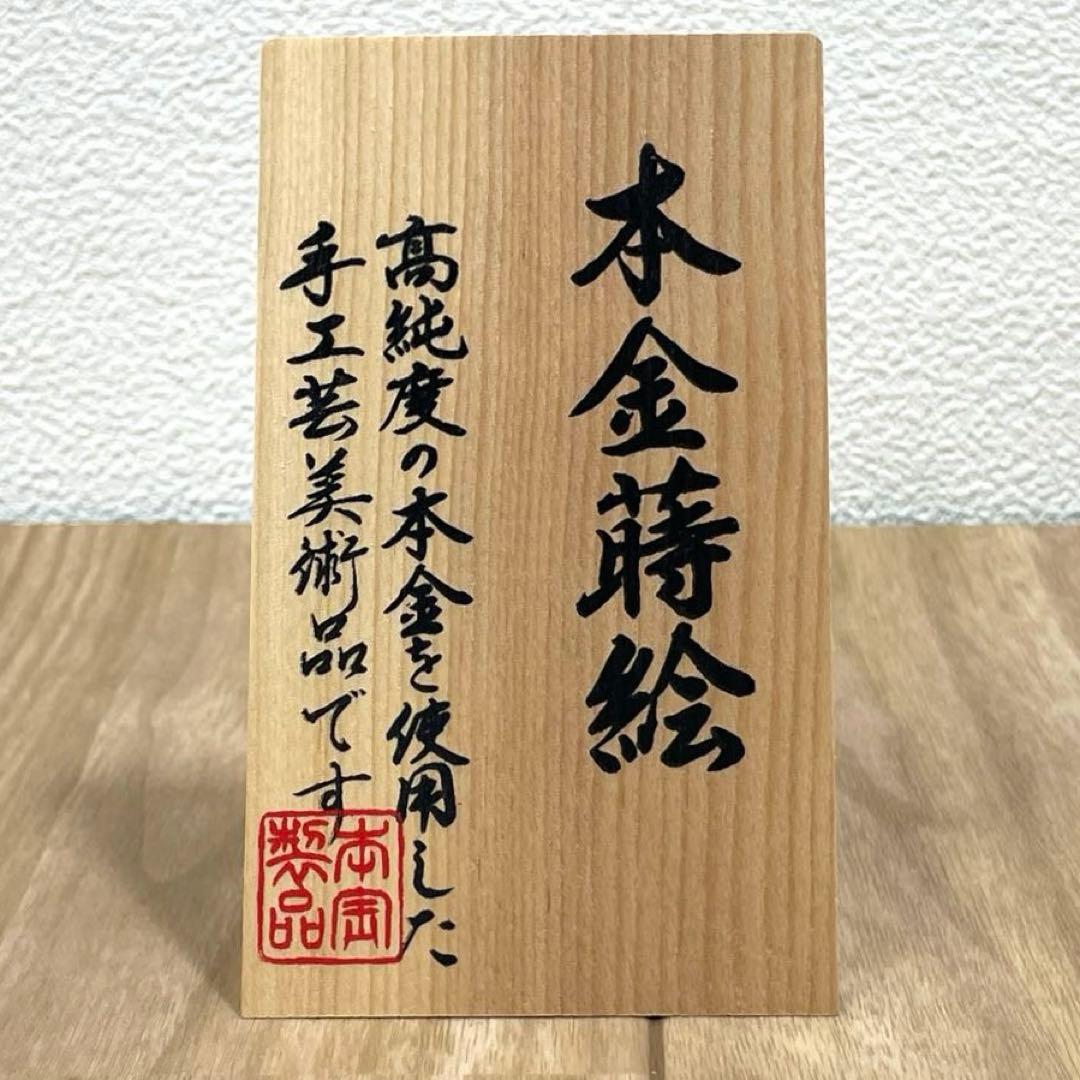 本金蒔絵
高純度の本金を使用した
手工芸美術品です
本金
製品